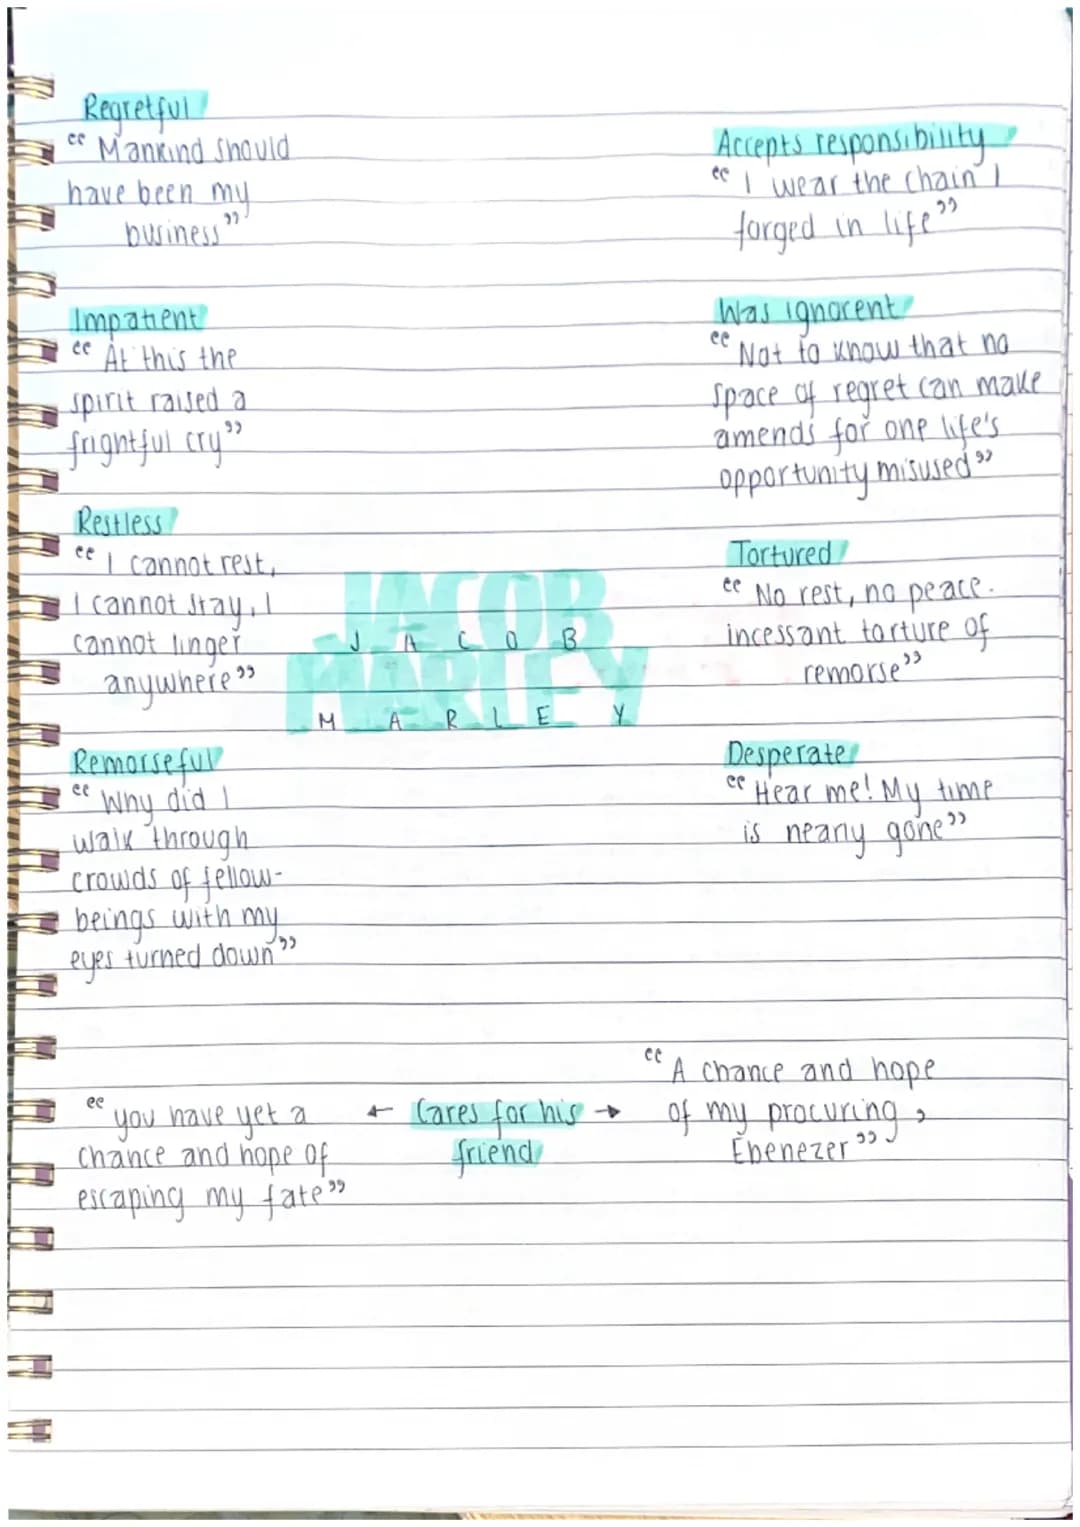 Regretful
“Mankind should
have been my
business”
Impatient
“At this the
spirit raised a
frightful cry”
Restless
“I cannot rest,
I cannot stay, I
cannot linger
anywhere”
Remorseful
“Why did I
walk through
crowds of fellow-
beings with my
eyes turned down”
JACOB
MARLEY
J A C O B
M A R L E Y
Accepts responsibility
“I wear the chain I
forged in life”
Was ignorent
“Not to know that no
space of regret can make
amends for one life's
opportunity misused”
Tortured
“No rest, no peace.
incessant torture of
remorse”
Desperate
“Hear me! My time
is nearly gone”
“you have yet a
chance and hope of
escaping my fate”
← Cares for his →
friend
“A chance and hope
of my procuring,
Ebenezer”